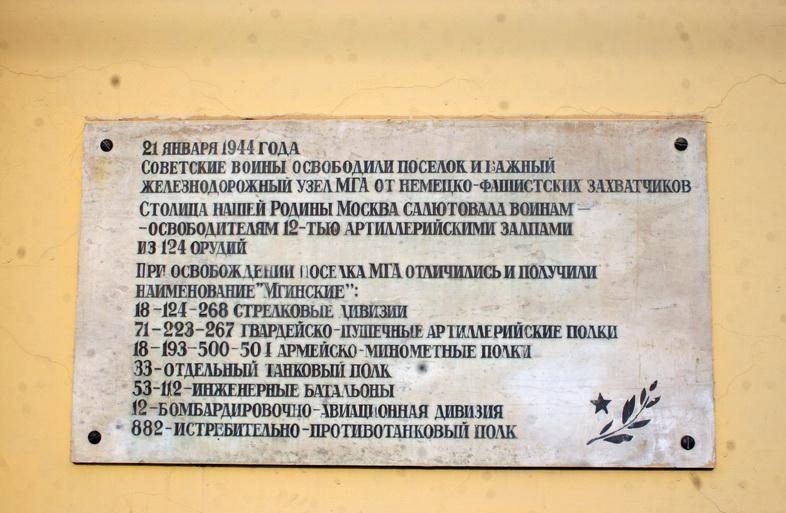 21 ЯНВАРЯ 1944 ГОДА
СОВЕТСКИЕ ВОИНЫ ОСВОБОДИЛИ ПОСЕЛОК И ВАЖНЫЙ
ЖЕЛЕЗНОДОРОЖНЫЙ УЗЕЛ МГА ОТ НЕМЕЦКО-ФАШИСТСКИХ ЗАХВАТЧИКОВ
СТОЛИЦА НАШЕЙ РОДИНЫ МОСКВА САЛЮТОВАЛА ВОИНАМ —
-ОСВОБОДИТЕЛЯМ 12-ТЬЮ АРТИЛЛЕРИЙСКИМИ ЗАЛПАМИ
ИЗ 124 ОРУДИЙ
ПРИ ОСВОБОЖДЕНИИ ПОСЕЛКА МГА ОТЛИЧИЛИСЬ И ПОЛУЧИЛИ
НАИМЕНОВАНИЕ "МГИНСКИЕ":
18-124-268 СТРЕЛКОВЫЕ ДИВИЗИИ
71-223-267 ГВАРДЕЙСКО-ПУШЕЧНЫЕ АРТИЛЛЕРИЙСКИЕ ПОЛКИ
18-193-500-501 АРМЕЙСКО-МИНОМЕТНЫЕ ПОЛКИ
33-ОТДЕЛЬНЫЙ ТАНКОВЫЙ ПОЛК
53-112-ИНЖЕНЕРНЫЕ БАТАЛЬОНЫ
12-БОМБАРДИРОВОЧНО-АВИАЦИОННАЯ ДИВИЗИЯ
882-ИСТРЕБИТЕЛЬНО-ПРОТИВОТАНКОВЫЙ ПОЛК